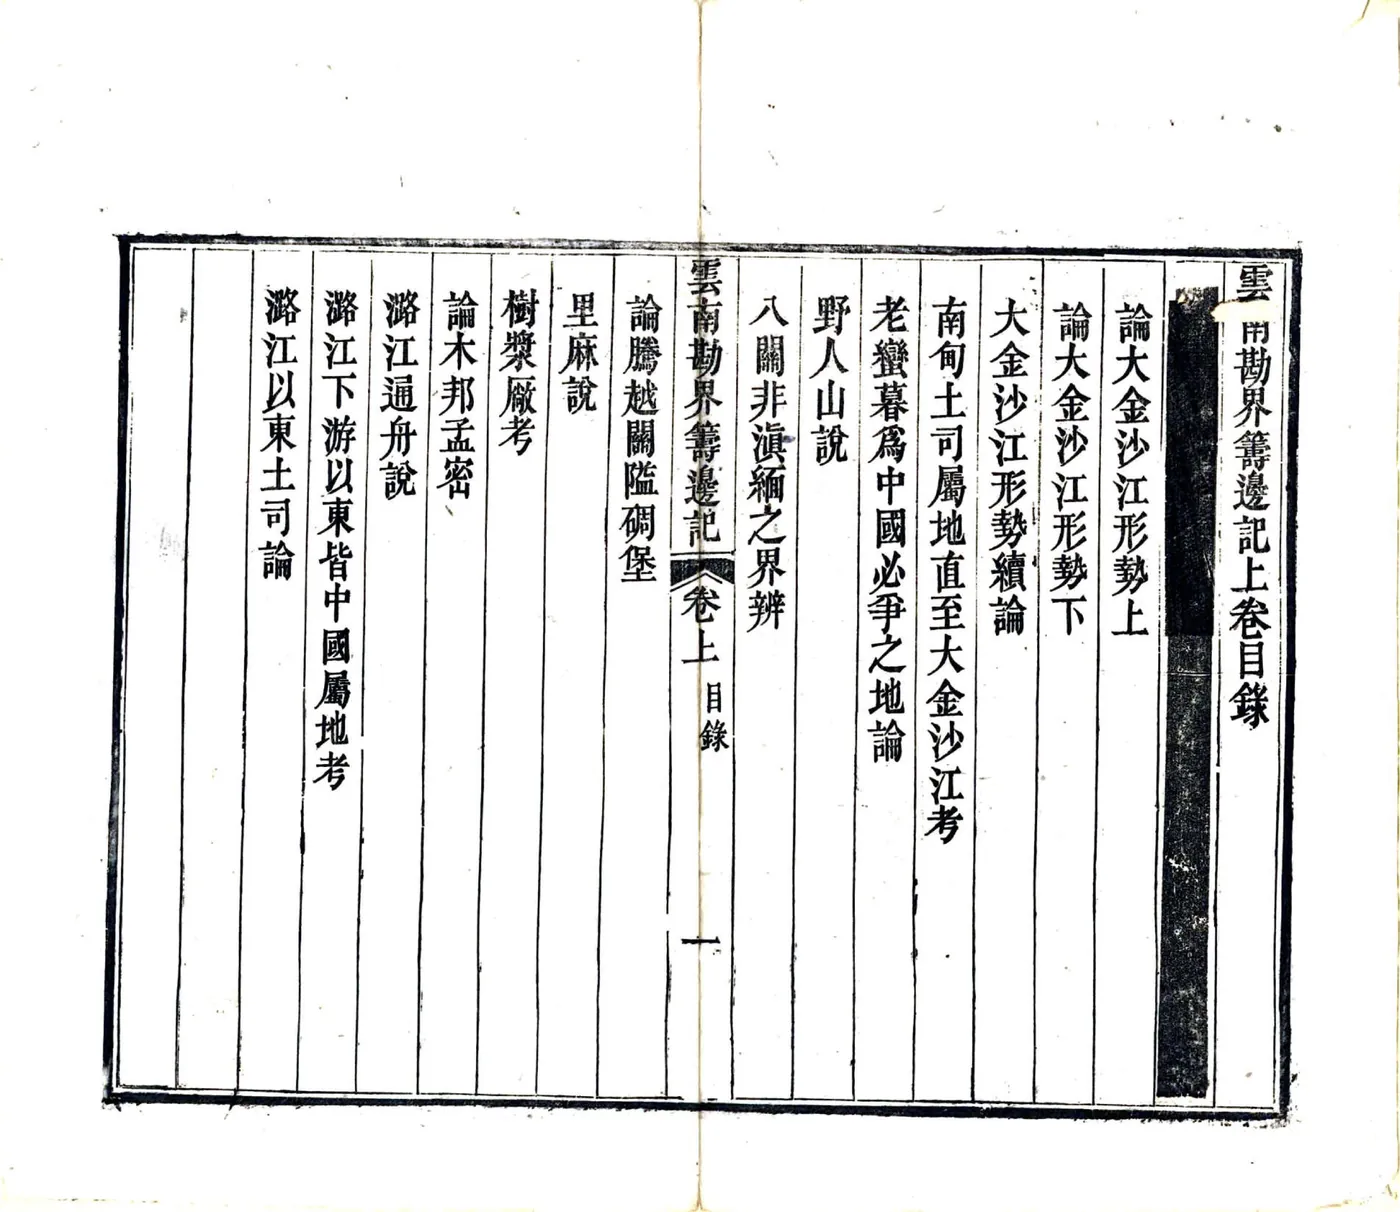 雲南勘界籌邊記上卷目錄
論大金沙江形勢上
論大金沙江形勢下
大金沙江形勢續論
南甸土司屬地直至大金沙江考
老蠻暮爲中國必爭之地論
野人山說
八關非滇緬之界辨
雲南勘界籌邊記
卷上
目錄
一
論騰越關隘碉堡
里麻說
樹漿厰考
論木邦孟密
潞江通舟說
潞江下游以東皆中國屬地考
潞江以東土司論